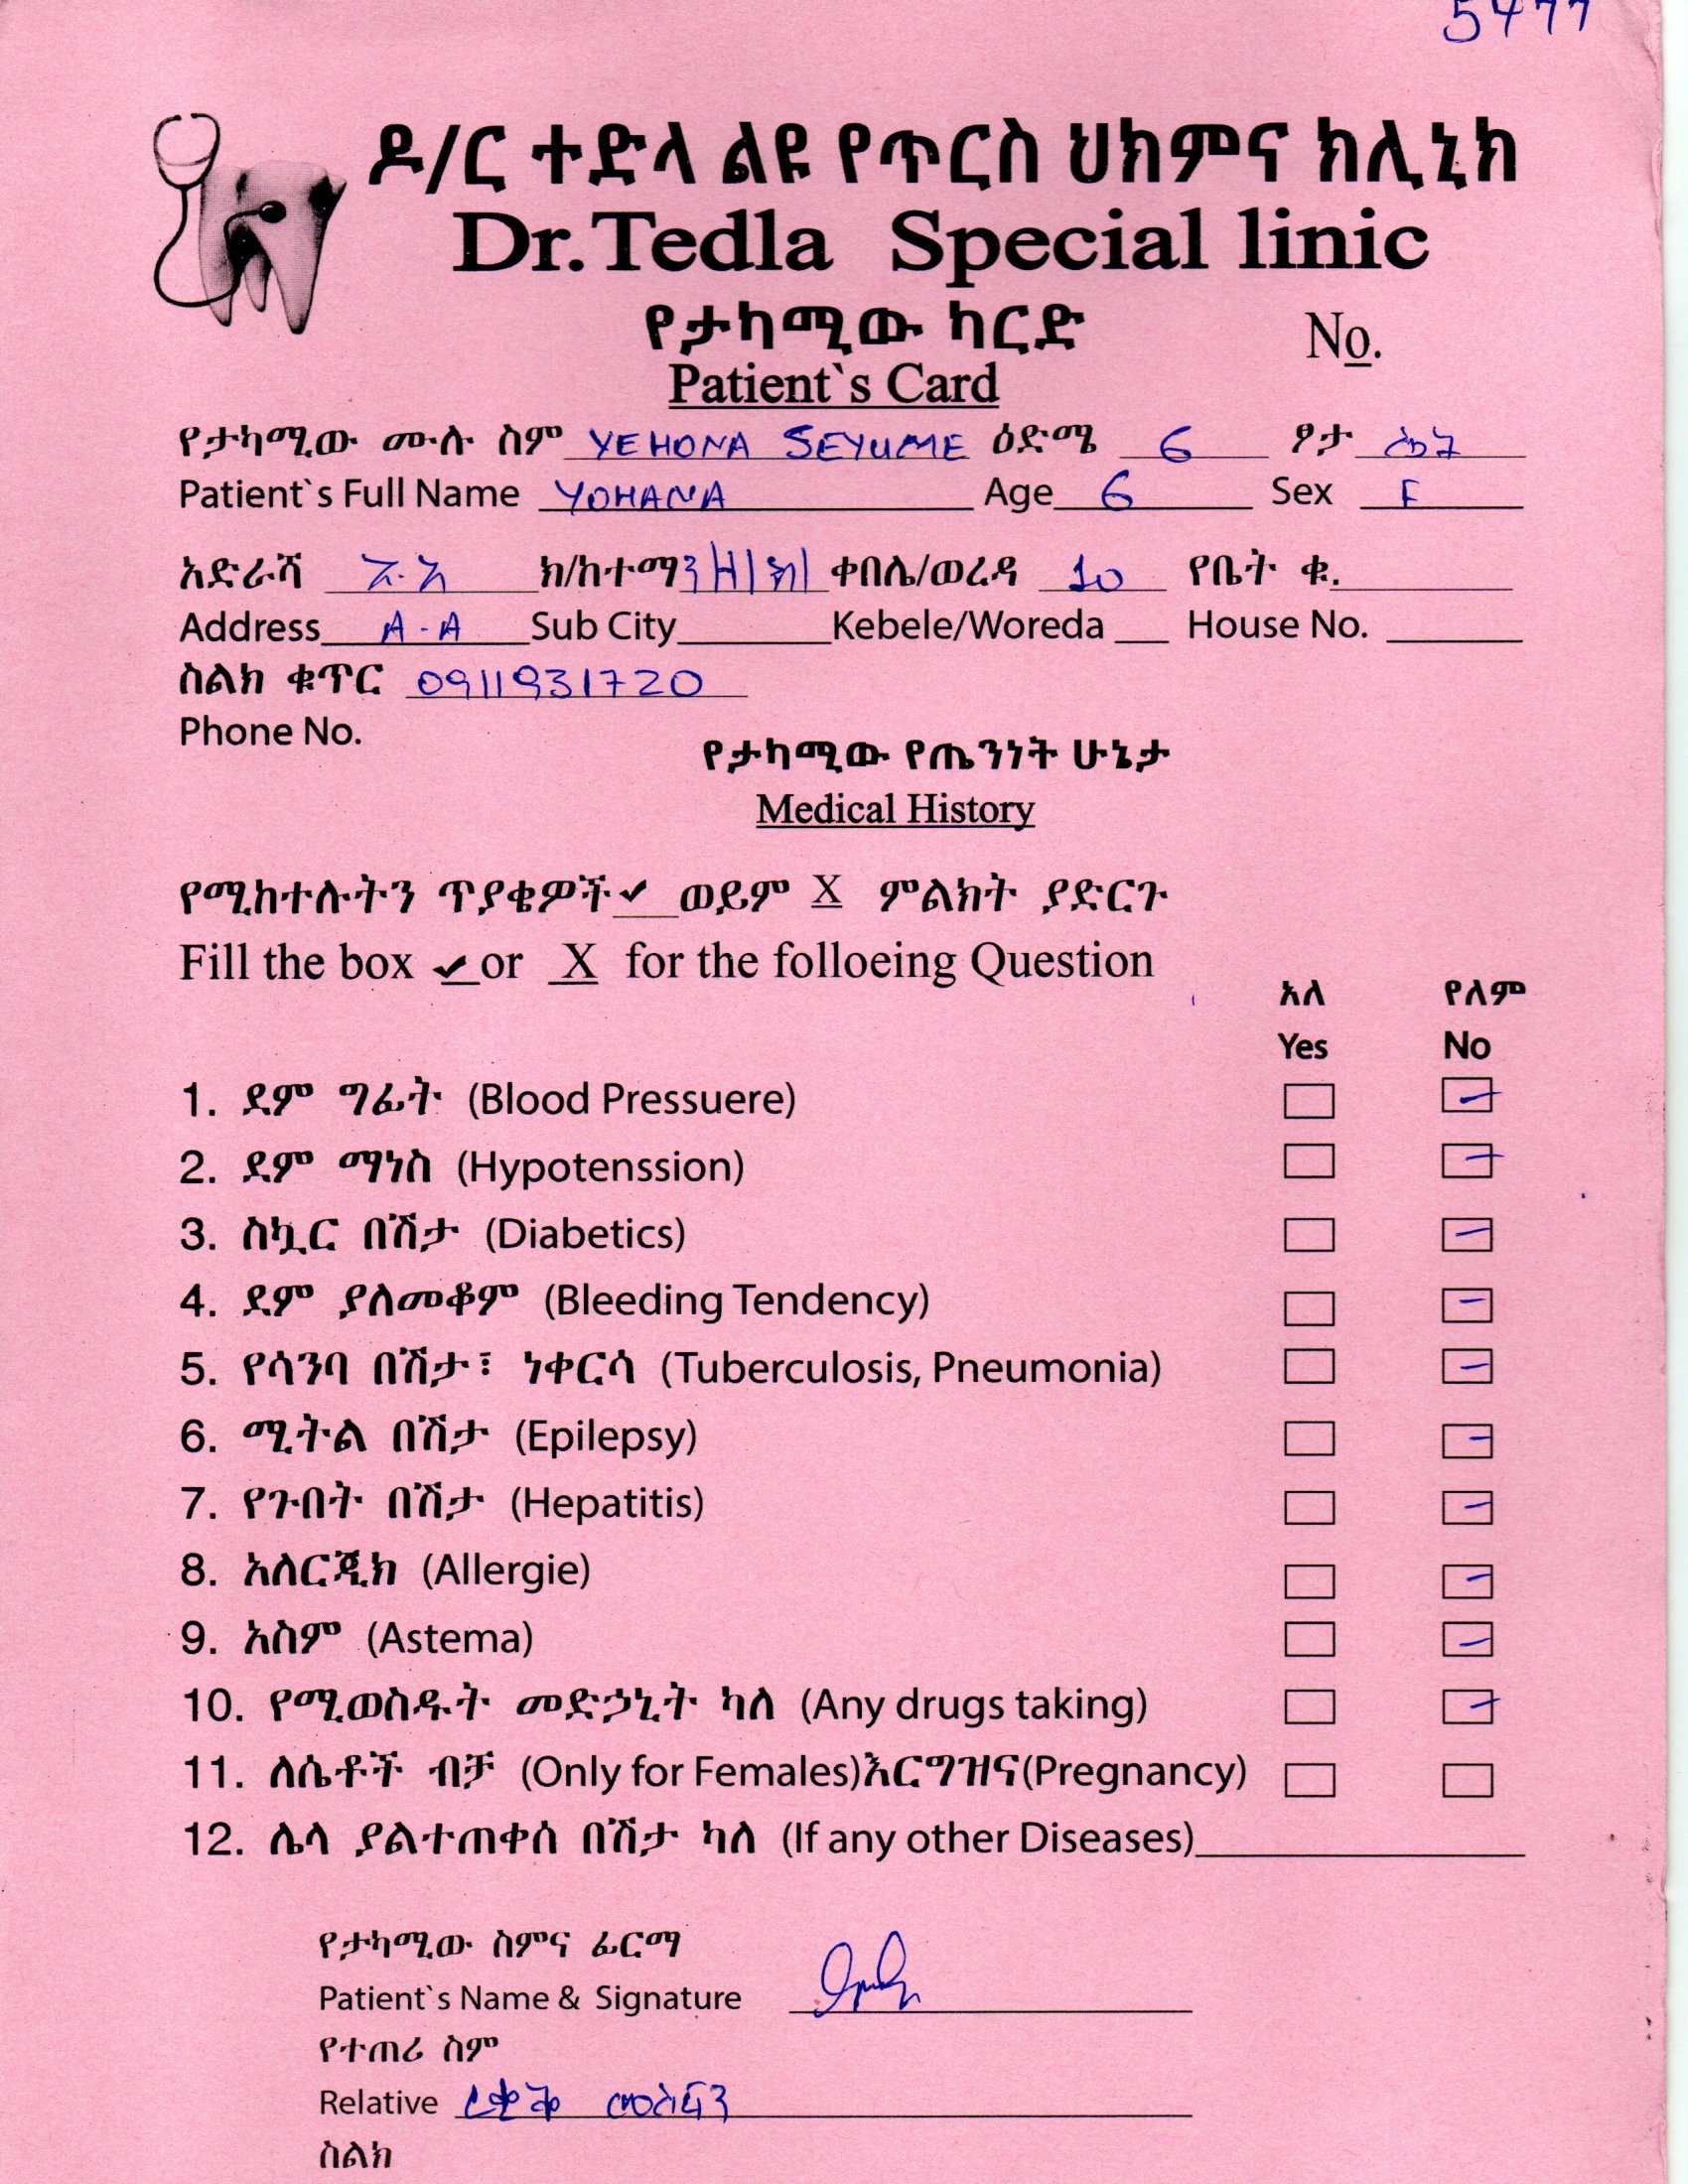 5477
ዶ/ር ተድላ ልዩ የጥርስ ህክምና ክሊኒክ
Dr.Tedla Special linic
የታካሚው ካርድ
No.
Patient`s Card
የታካሚው ሙሉ ስም YEHONA SEYUME ዕድሜ 6 ፆታ ሴት
Patient`s Full Name YOHANA Age 6 Sex F
አድራሻ አ.አ ክ/ከተማ ቀበሌ/ወረዳ 10 የቤት ቁ.
Address A-A Sub City Kebele/Woreda House No.
ስልክ ቁጥር 0911931720
Phone No.
የታካሚው የጤንነት ሁኔታ
Medical History
የሚከተሉትን ጥያቄዎች ✓ ወይም X ምልክት ያድርጉ
Fill the box ✓ or X for the folloeing Question
አለ የለም
Yes No
1. ደም ግፊት (Blood Pressuere)
2. ደም ማነስ (Hypotenssion)
3. ስኳር በሽታ (Diabetics)
4. ደም ያለመቆም (Bleeding Tendency)
5. የሳንባ በሽታ፣ ነቀርሳ (Tuberculosis, Pneumonia)
6. ሚትል በሽታ (Epilepsy)
7. የጉበት በሽታ (Hepatitis)
8. አለርጂክ (Allergie)
9. አስም (Astema)
10. የሚወስዱት መድኃኒት ካለ (Any drugs taking)
11. ለሴቶች ብቻ (Only for Females)እርግዝና(Pregnancy)
12. ሌላ ያልተጠቀሰ በሽታ ካለ (If any other Diseases)
የታካሚው ስምና ፊርማ
Patient`s Name & Signature
የተጠሪ ስም
Relative መስፍን
ስልክ